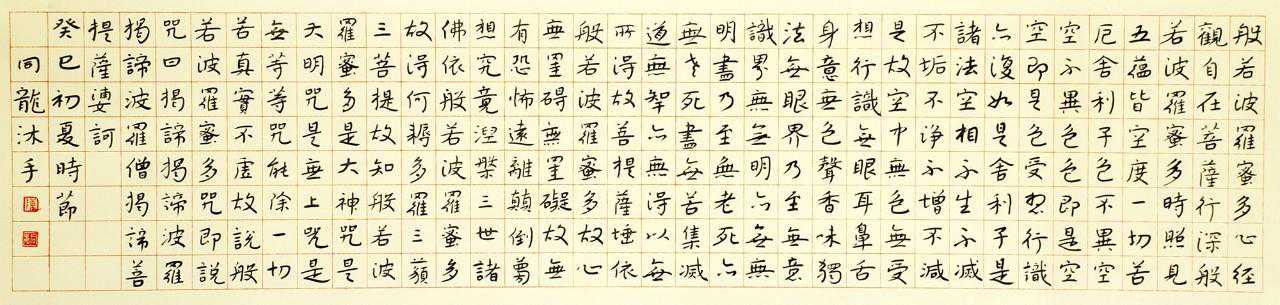 般若波羅蜜多心経
觀自在菩薩行深般
若波羅蜜多時照見
五蘊皆空度一切苦
厄舍利子色不異空
空不異色色即是空
空即是色受想行識
亦復如是舍利子是
諸法空相不生不滅
不垢不淨不增不減
是故空中無色無受
想行識無眼耳鼻舌
身意無色聲香味獨
法無眼界乃至無意
識界無無明亦無無
明盡乃至無老死亦
無老死盡無苦集滅
道無智亦無得以無
所得故菩提薩埵依
般若波羅蜜多故心
無罣碍無罣礙故無
有恐怖遠離顛倒夢
想究竟涅槃三世諸
佛依般若波羅蜜多
故得何耨多羅三藐
三菩提故知般若波
羅蜜多是大神咒是
大明咒是無上咒是
無等等咒能除一切
苦真實不虛故說般
若波羅蜜多咒即說
咒曰揭諦揭諦波羅
揭諦波羅僧揭諦菩
提薩婆訶
癸巳初夏時節
同龍沐手